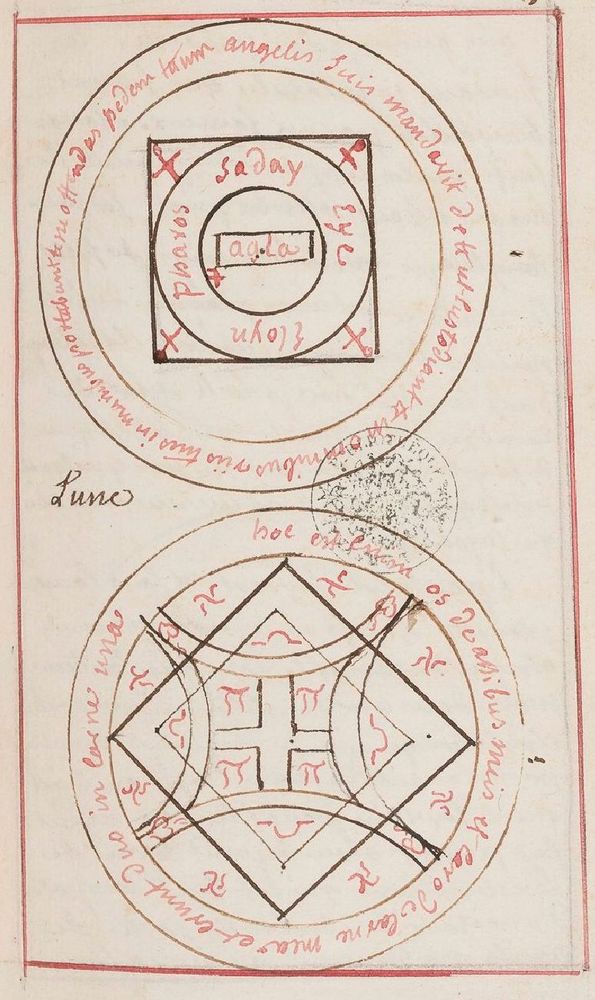 angelis suis mandavit de te ut Custodiant te in omnibus viis tuis in manibus portabunt te ne offendas pedem tuum
saday
Eloyn
agla
Lune
hoc est enim os de ossibus meis et Caro de Carne mea et erunt Duo in Carne una